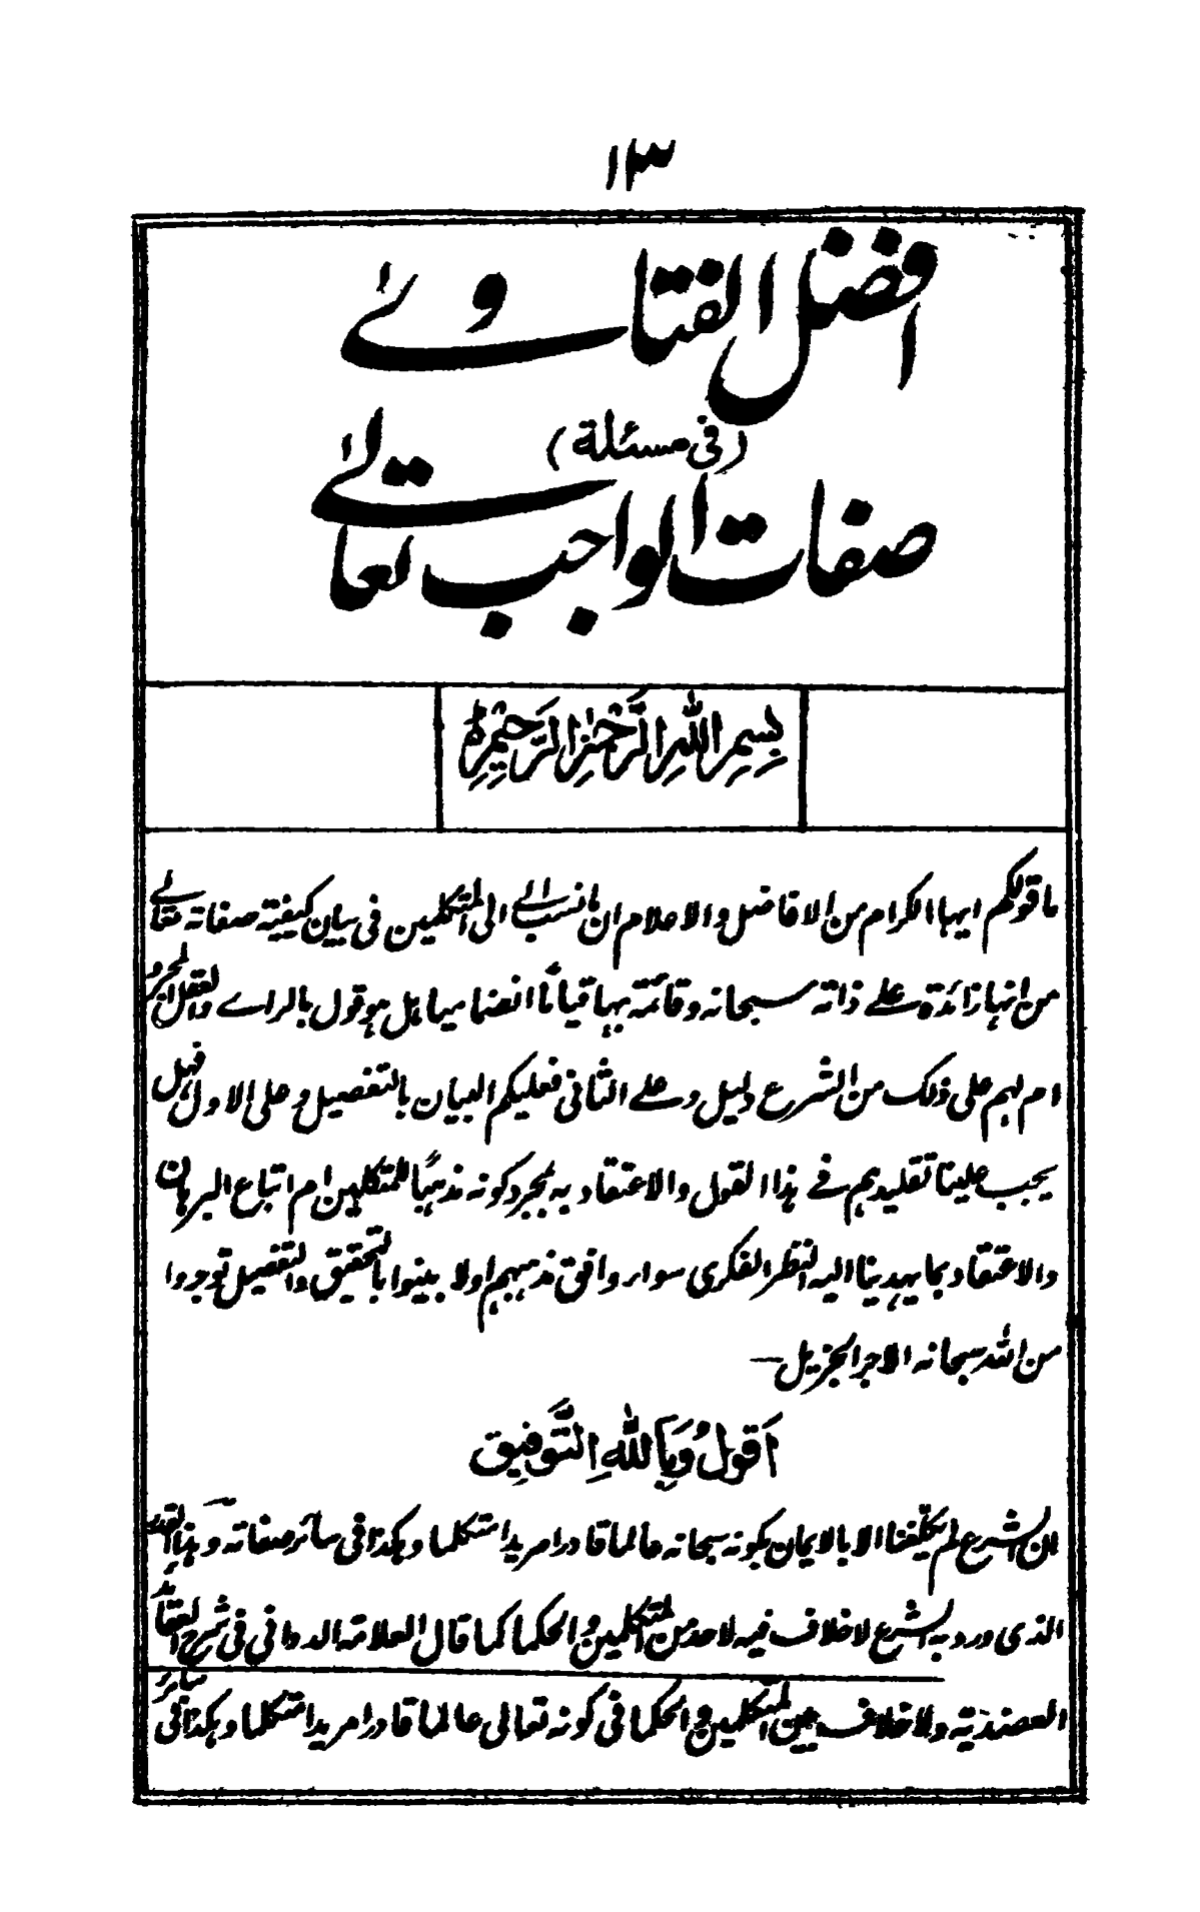 ۱۳
افضل الفتاوے
(فی مسئلة)
صفات الواجب تعالے
بِسْمِ اللهِ الرَّحْمٰنِ الرَّحِيْمِ
ما قولكم ايها الكرام من الافاضل والاعلام ان ما نسب الے المتكلمين فی بيان كيفية صفاته تعالے
من انها زائدة علے ذاته سبحانه وقائمة بها قياماً انضماميا هل هو قول بالراے والعقل المجرد
ام لهم علی ذلك من الشرع دليل وعلے الثانی فعليكم البيان بالتفصيل وعلی الاول فهل
يجب علينا تقليدهم فے هذا القول والاعتقاد به بمجرد كونه مذهباً للمتكلمين ام اتباع البرهان
والاعتقاد بما يهدينا اليه النظر الفكری سواء وافق مذهبهم اولا بينوا بالتحقيق والتفصيل توجروا
من الله سبحانه الاجر الجزيل —
اَقولُ وَبِاللهِ التَّوفِيق
ان الشرع لم يكلّفنا الا بالايمان بكونه سبحانه عالما قادرا مريدا متكلما وهكذا فی سائر صفاته وهذا القدر
الذی ورد به الشرع لا خلاف فيه لاحد من المتكلمين والحكما كما قال العلامة الدوانی فی شرح العقائد
العضدية ولا خلاف بين المتكلمين والحكما فی كونه تعالی عالما قادرا مريدا متكلما وهكذا فی سائر